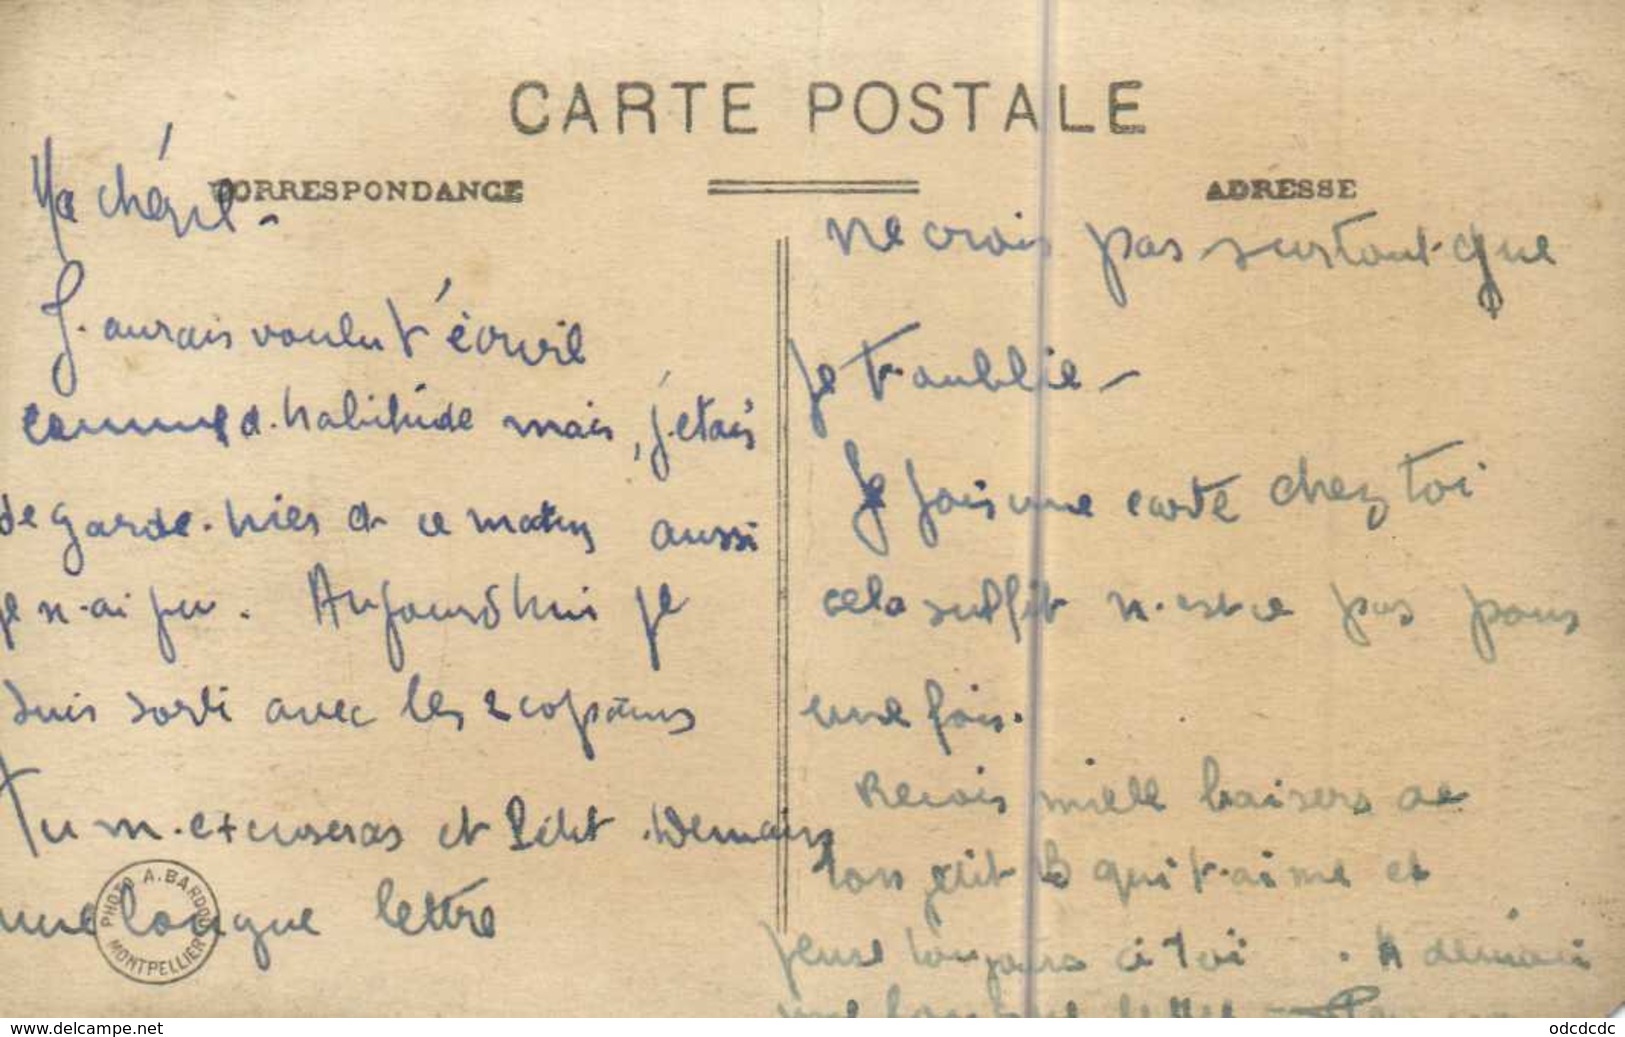 CARTE POSTALE
CORRESPONDANCE
ADRESSE
Ma chérie -
J'aurais voulu t'écrire
comme d'habitude mais, j'étais
de garde hier et ce matin aussi
je n'ai pu. Aujourd'hui je
suis sorti avec les 2 copains
Tu m'excuseras et Petit Demain
une longue lettre
ne crois pas surtout que
je t'oublie -
Je fais une carte chez toi
cela suffit n'est ce pas pour
une fois.
Recois mille baisers de
ton petit qui t'aime et
pense toujours à toi. A demain
une longue lettre -
PHOTO A. BARDOU
MONTPELLIER
www.delcampe.net
odcdcdc